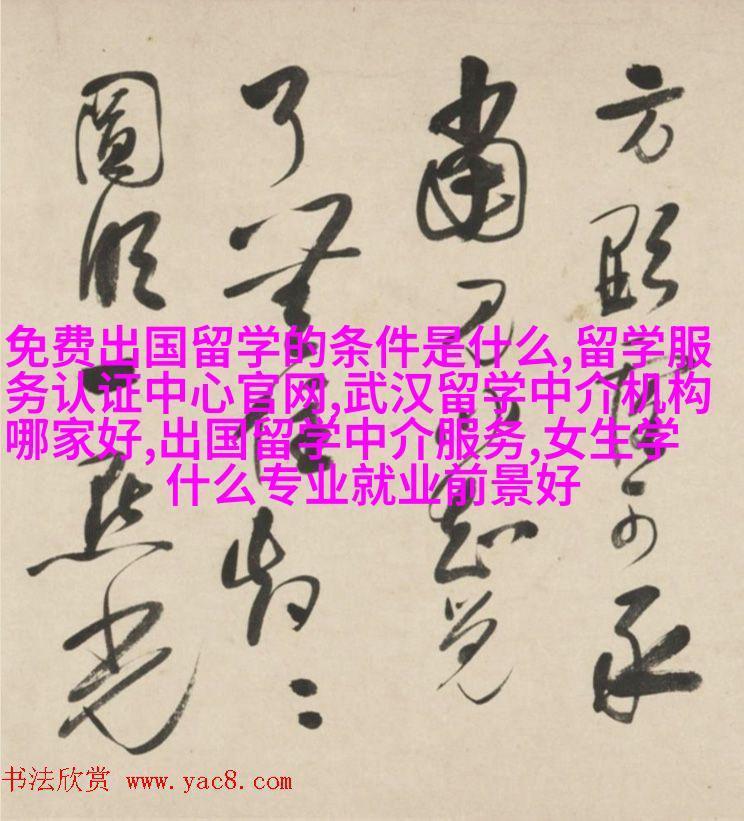 方顯可承
見聞知覺
了無
圓明一點光
免费出国留学的条件是什么,留学服
务认证中心官网,武汉留学中介机构
哪家好,出国留学中介服务,女生学
什么专业就业前景好
书法欣赏 www.yac8.com